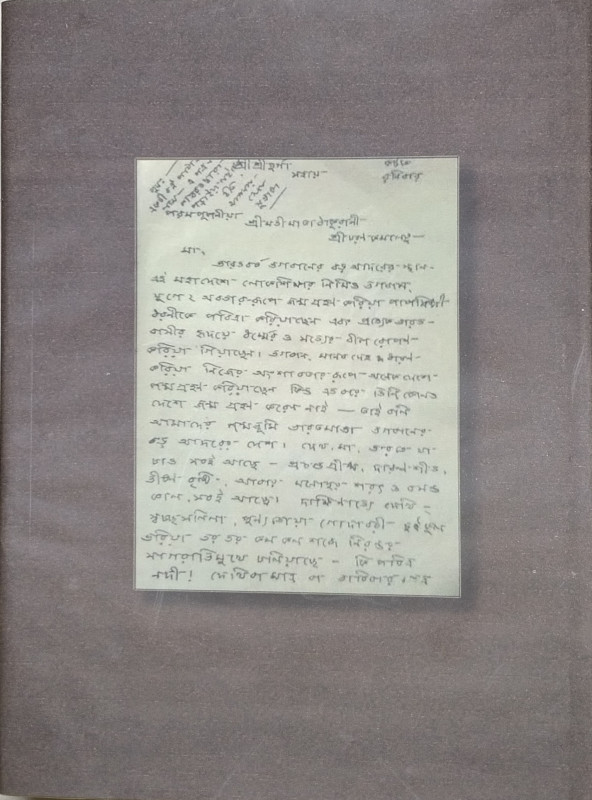 শ্রীশ্রীদুর্গা
সহায়
কটক
রবিবার
পরমপূজনীয়া
শ্রীমতী মাতা ঠাকুরানী
শ্রীচরণকমলেষু—
মা,
ভারতবর্ষ ভগবানের বড় আদরের স্থান—
এই মহাদেশে লোকশিক্ষার নিমিত্ত ভগবান
যুগে ২ অবতার রূপে জন্ম গ্রহণ করিয়া পাপক্লিষ্টা
ধরণীকে পবিত্র করিয়াছেন এবং প্রত্যেক ভারত-
বাসীর হৃদয়ে ধর্ম্মের ও সত্যের বীজ রোপণ
করিয়া গিয়াছেন। ভগবান মানব দেহ ধারণ
করিয়া নিজের অংশাবতার রূপে অনেক দেশে
জন্মগ্রহণ করিয়াছেন কিন্তু এতবার তিনি কোনও
দেশে জন্ম গ্রহণ করেন নাই — তাই বলি
আমাদের জন্মভূমি ভারতমাতা ভগবানের
বড় আদরের দেশ। দেখ, মা, ভারতে যা
চাও সবই আছে — প্রচণ্ড গ্রীষ্ম, দারুণ শীত,
ভীষণ বৃষ্টি, আবার মনোহর শরৎ ও বসন্ত
কাল, সবই আছে। দাক্ষিণাত্যে দেখি—
স্বচ্ছসলিলা, পুণ্যতোয়া গোদাবরী দুই কূল
ভরিয়া তর তর কল কল শব্দে নিরন্তর
সাগরাভিমুখে চলিয়াছে — কি পবিত্র
নদী! দেখিবামাত্র বা ভাবিবামাত্র